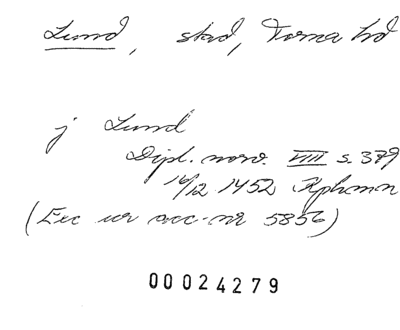 Lund, stad, Torna hd
j Lund
Dipl. norv. VIII s. 379
16/12 1452 Kphmn
(Exc ur acc-nr 5856)
00024279